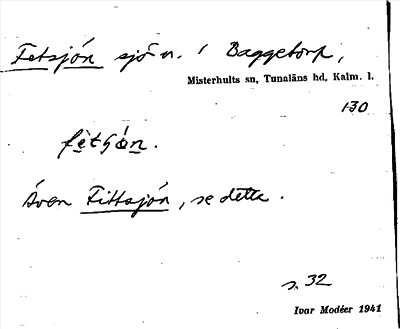 Fetsjön sjön. i Baggetorp,
Misterhults sn, Tunaläns hd, Kalm. l.
130
fètʃọ̀n.
Även Fittsjön, se detta.
s. 32
Ivar Modéer 1941